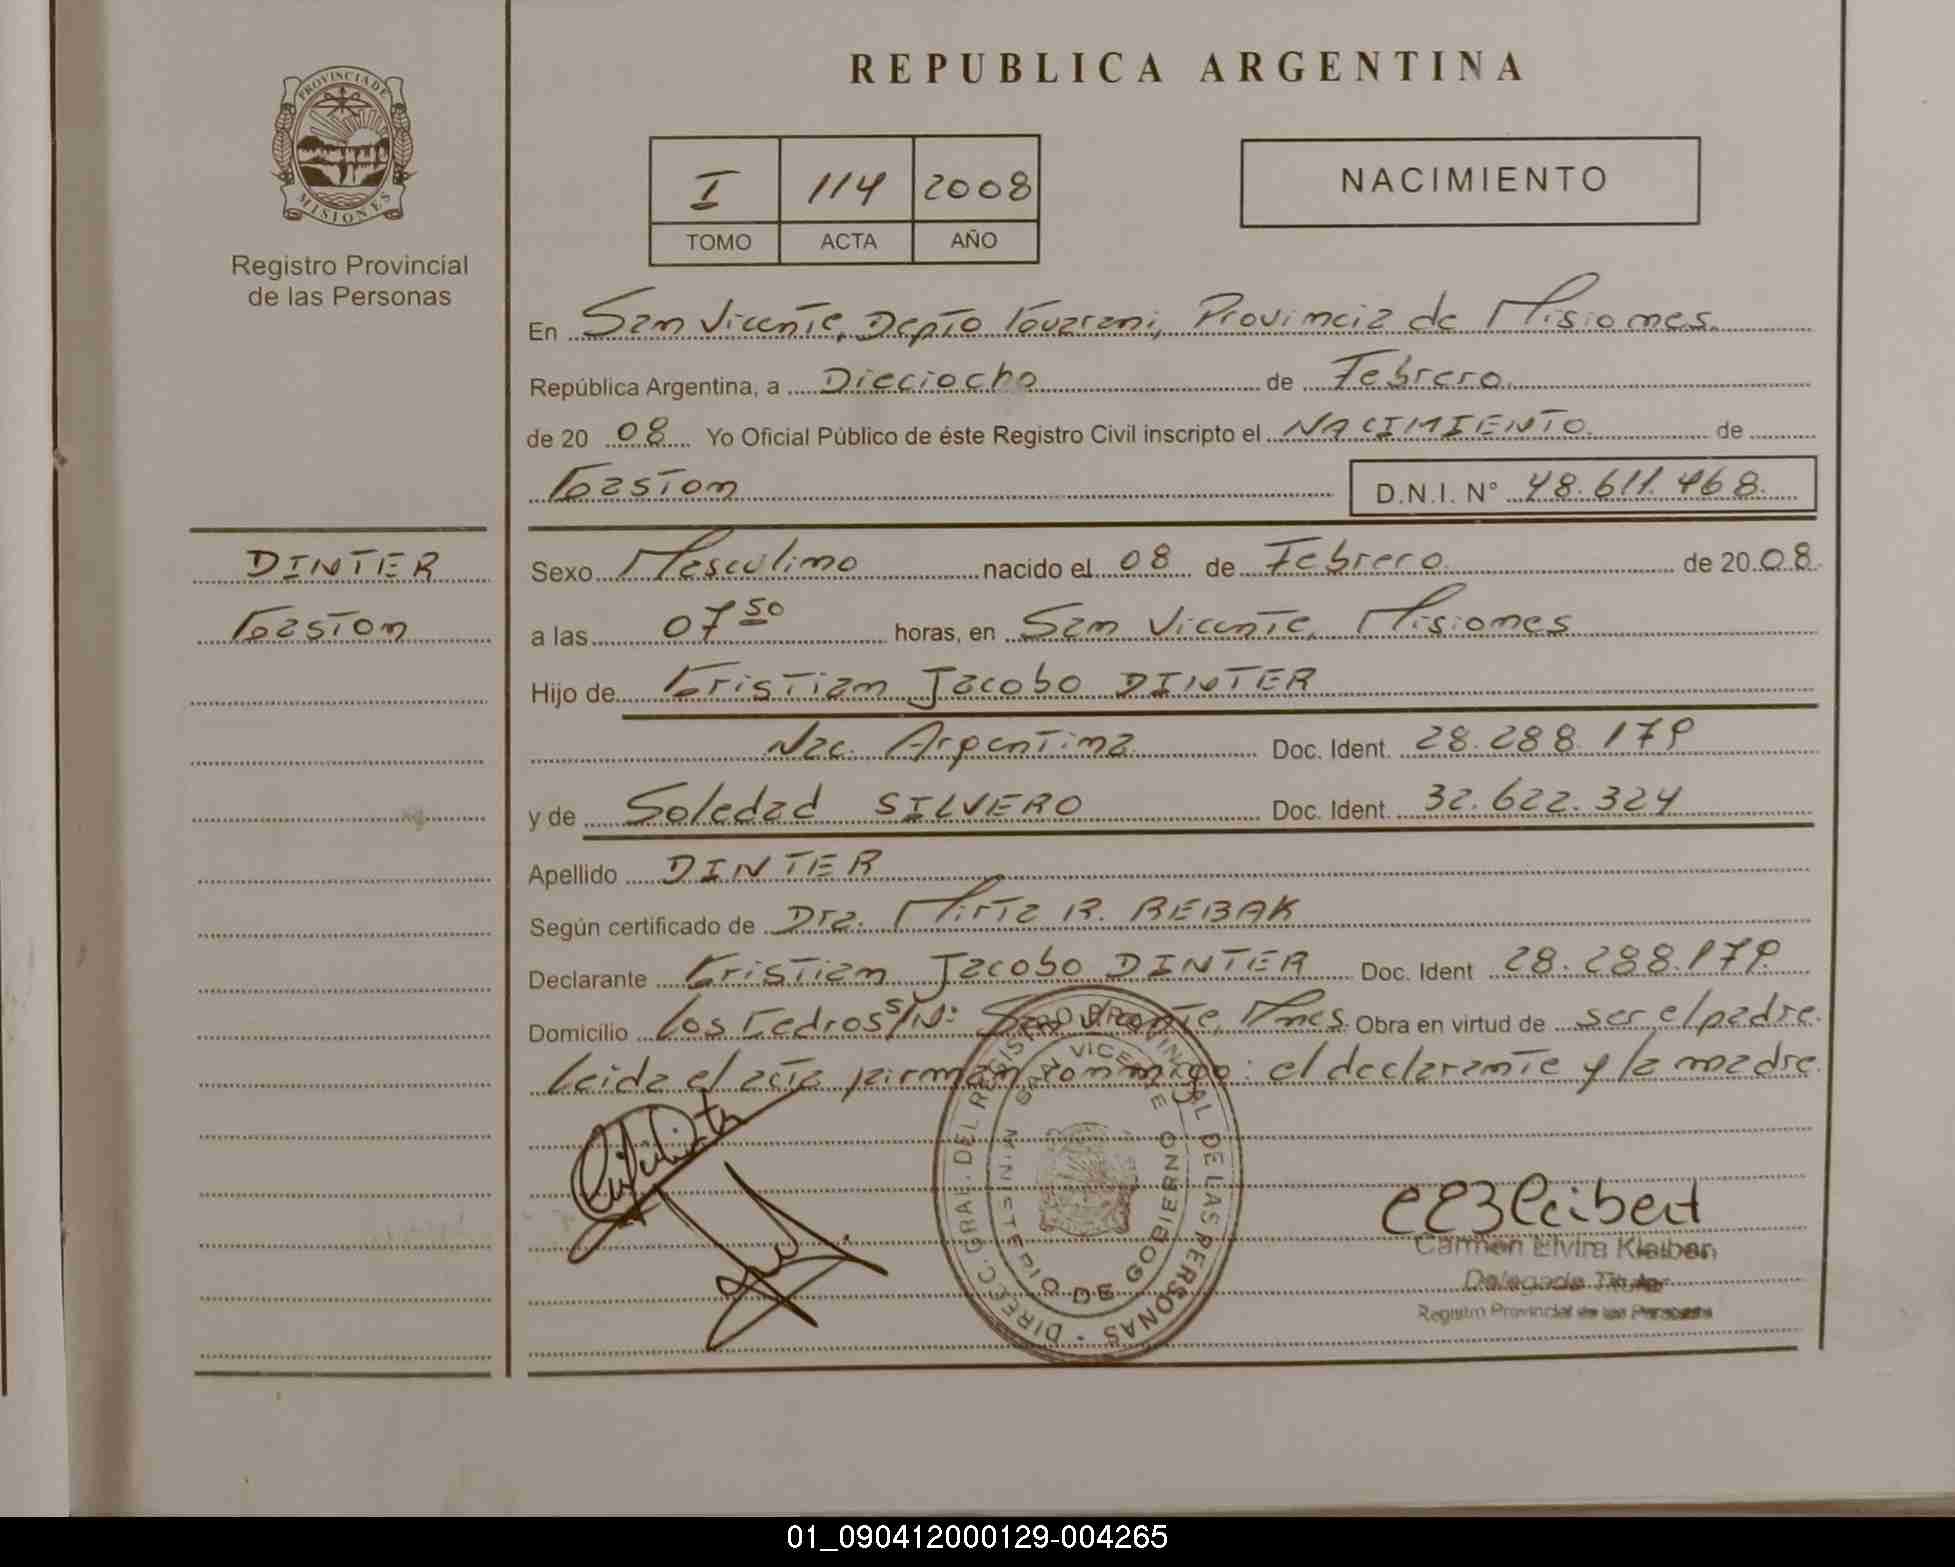 PROVINCIA DE
MISIONES
Registro Provincial
de las Personas
DINTER
Gaston
REPUBLICA ARGENTINA
I 114 2008
TOMO ACTA AÑO
NACIMIENTO
En San Vicente, Depto Guarani, Provincia de Misiones
República Argentina, a Dieciocho de Febrero
de 20 08 Yo Oficial Público de éste Registro Civil inscripto el NACIMIENTO de
Gaston D.N.I. N° 48.611.468
Sexo Masculino nacido el 08 de Febrero de 20 08
a las 07 50 horas, en San Vicente, Misiones
Hijo de Cristian Jacobo DINTER
Nac. Argentina Doc. Ident. 28.288.179
y de Soledad SILVERO Doc. Ident. 32.622.324
Apellido DINTER
Según certificado de Dra. Mirta R. REBAK
Declarante Cristian Jacobo DINTER Doc. Ident 28.288.179
Domicilio Los Cedros S/N: San Vicente, Mnes Obra en virtud de ser el padre
Leida el acta firman conmigo: el declarante y la madre
DIREC. GRAL. DEL REGISTRO PROVINCIAL DE LAS PERSONAS
SAN VICENTE
MINISTERIO DE GOBIERNO
Carmen Elvira Kleibert
Delegada Titular
Registro Provincial de las Personas
01_090412000129-004265